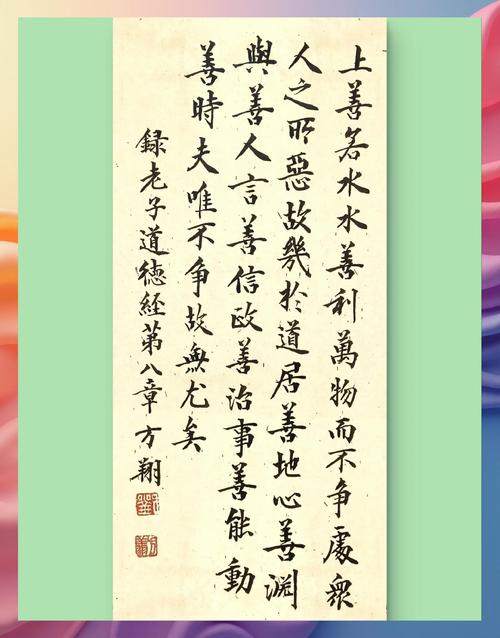 上善若水水善利萬物而不争處衆
人之所惡故幾於道居善地心善淵
與善人言善信政善治事善能動
善時夫唯不争故無尤矣
録老子道德經第八章方翔